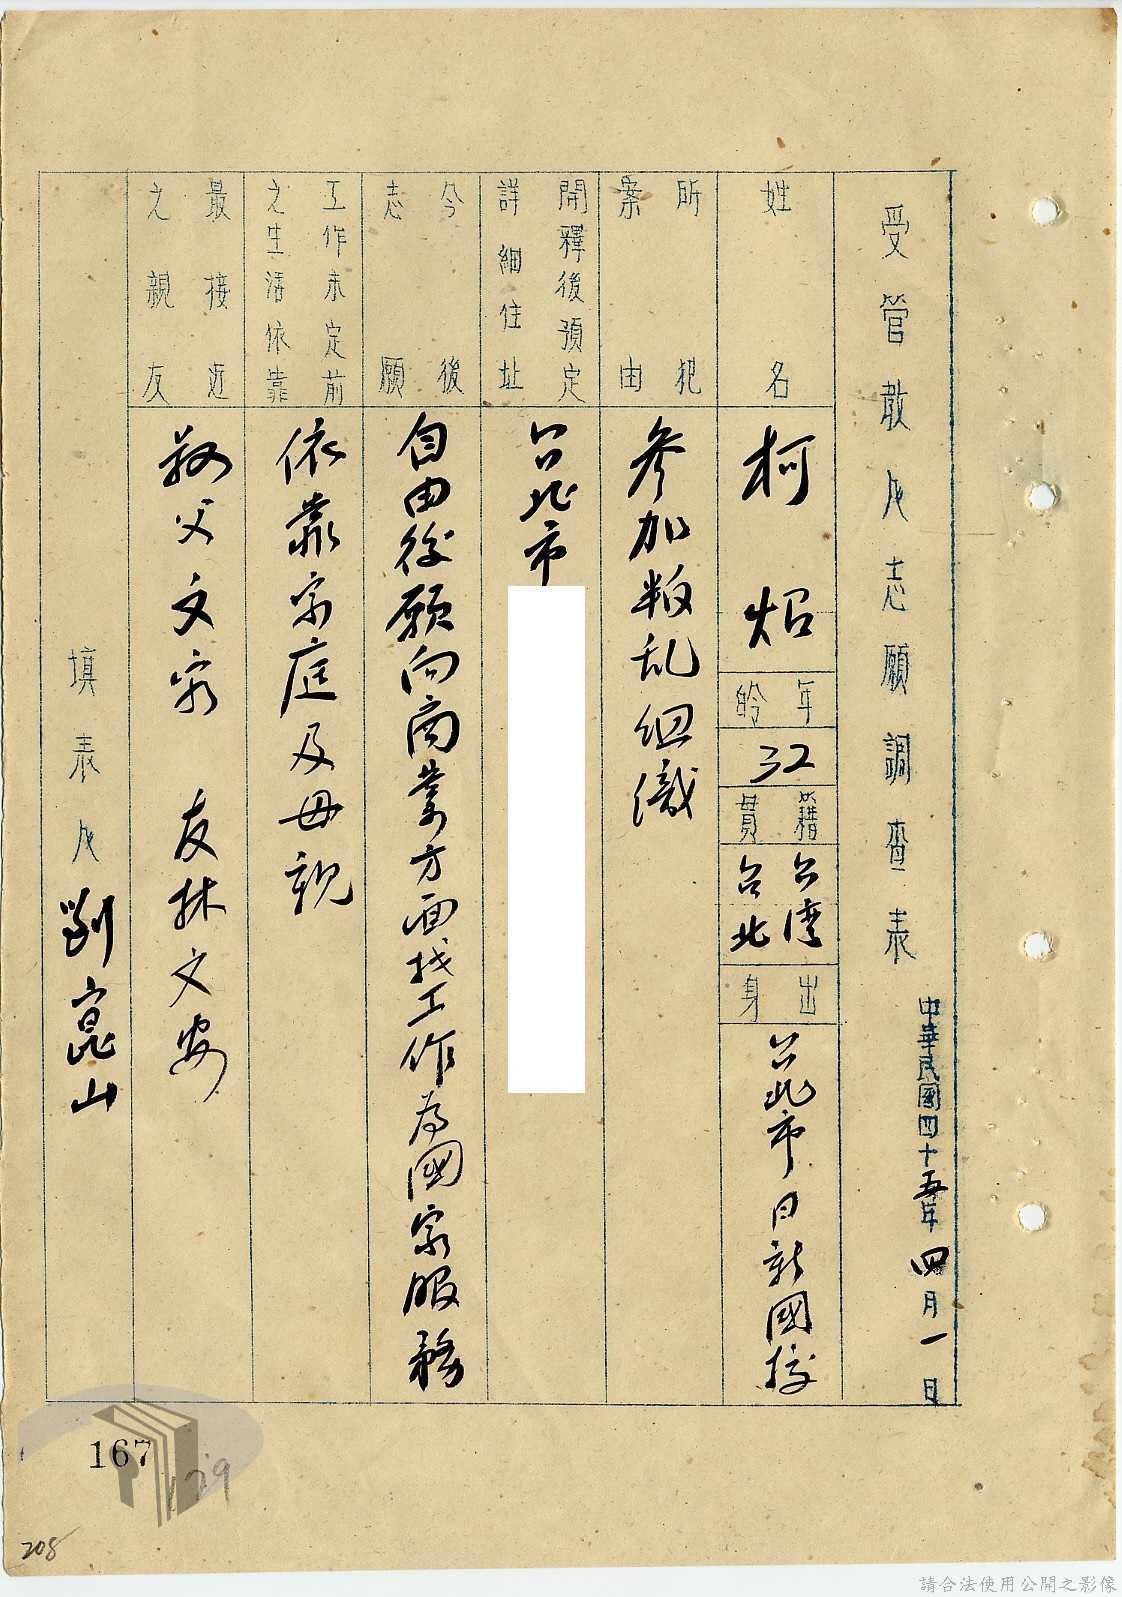 受管敢人志願調查表
中華民國四十五年四月一日
姓名
柯炤
年齡
32
籍貫
台灣
台北
出身
台北市日新國校
所犯
案由
參加叛乱組織
開釋後預定
詳細住址
台北市
今後
志願
自由後願向商業方面找工作為國家服務
工作未定前
之生活依靠
依靠家庭及母親
最接近
之親友
叔父文彬 友林文安
填表人劉崑山
167
179
208
請合法使用公開之影像